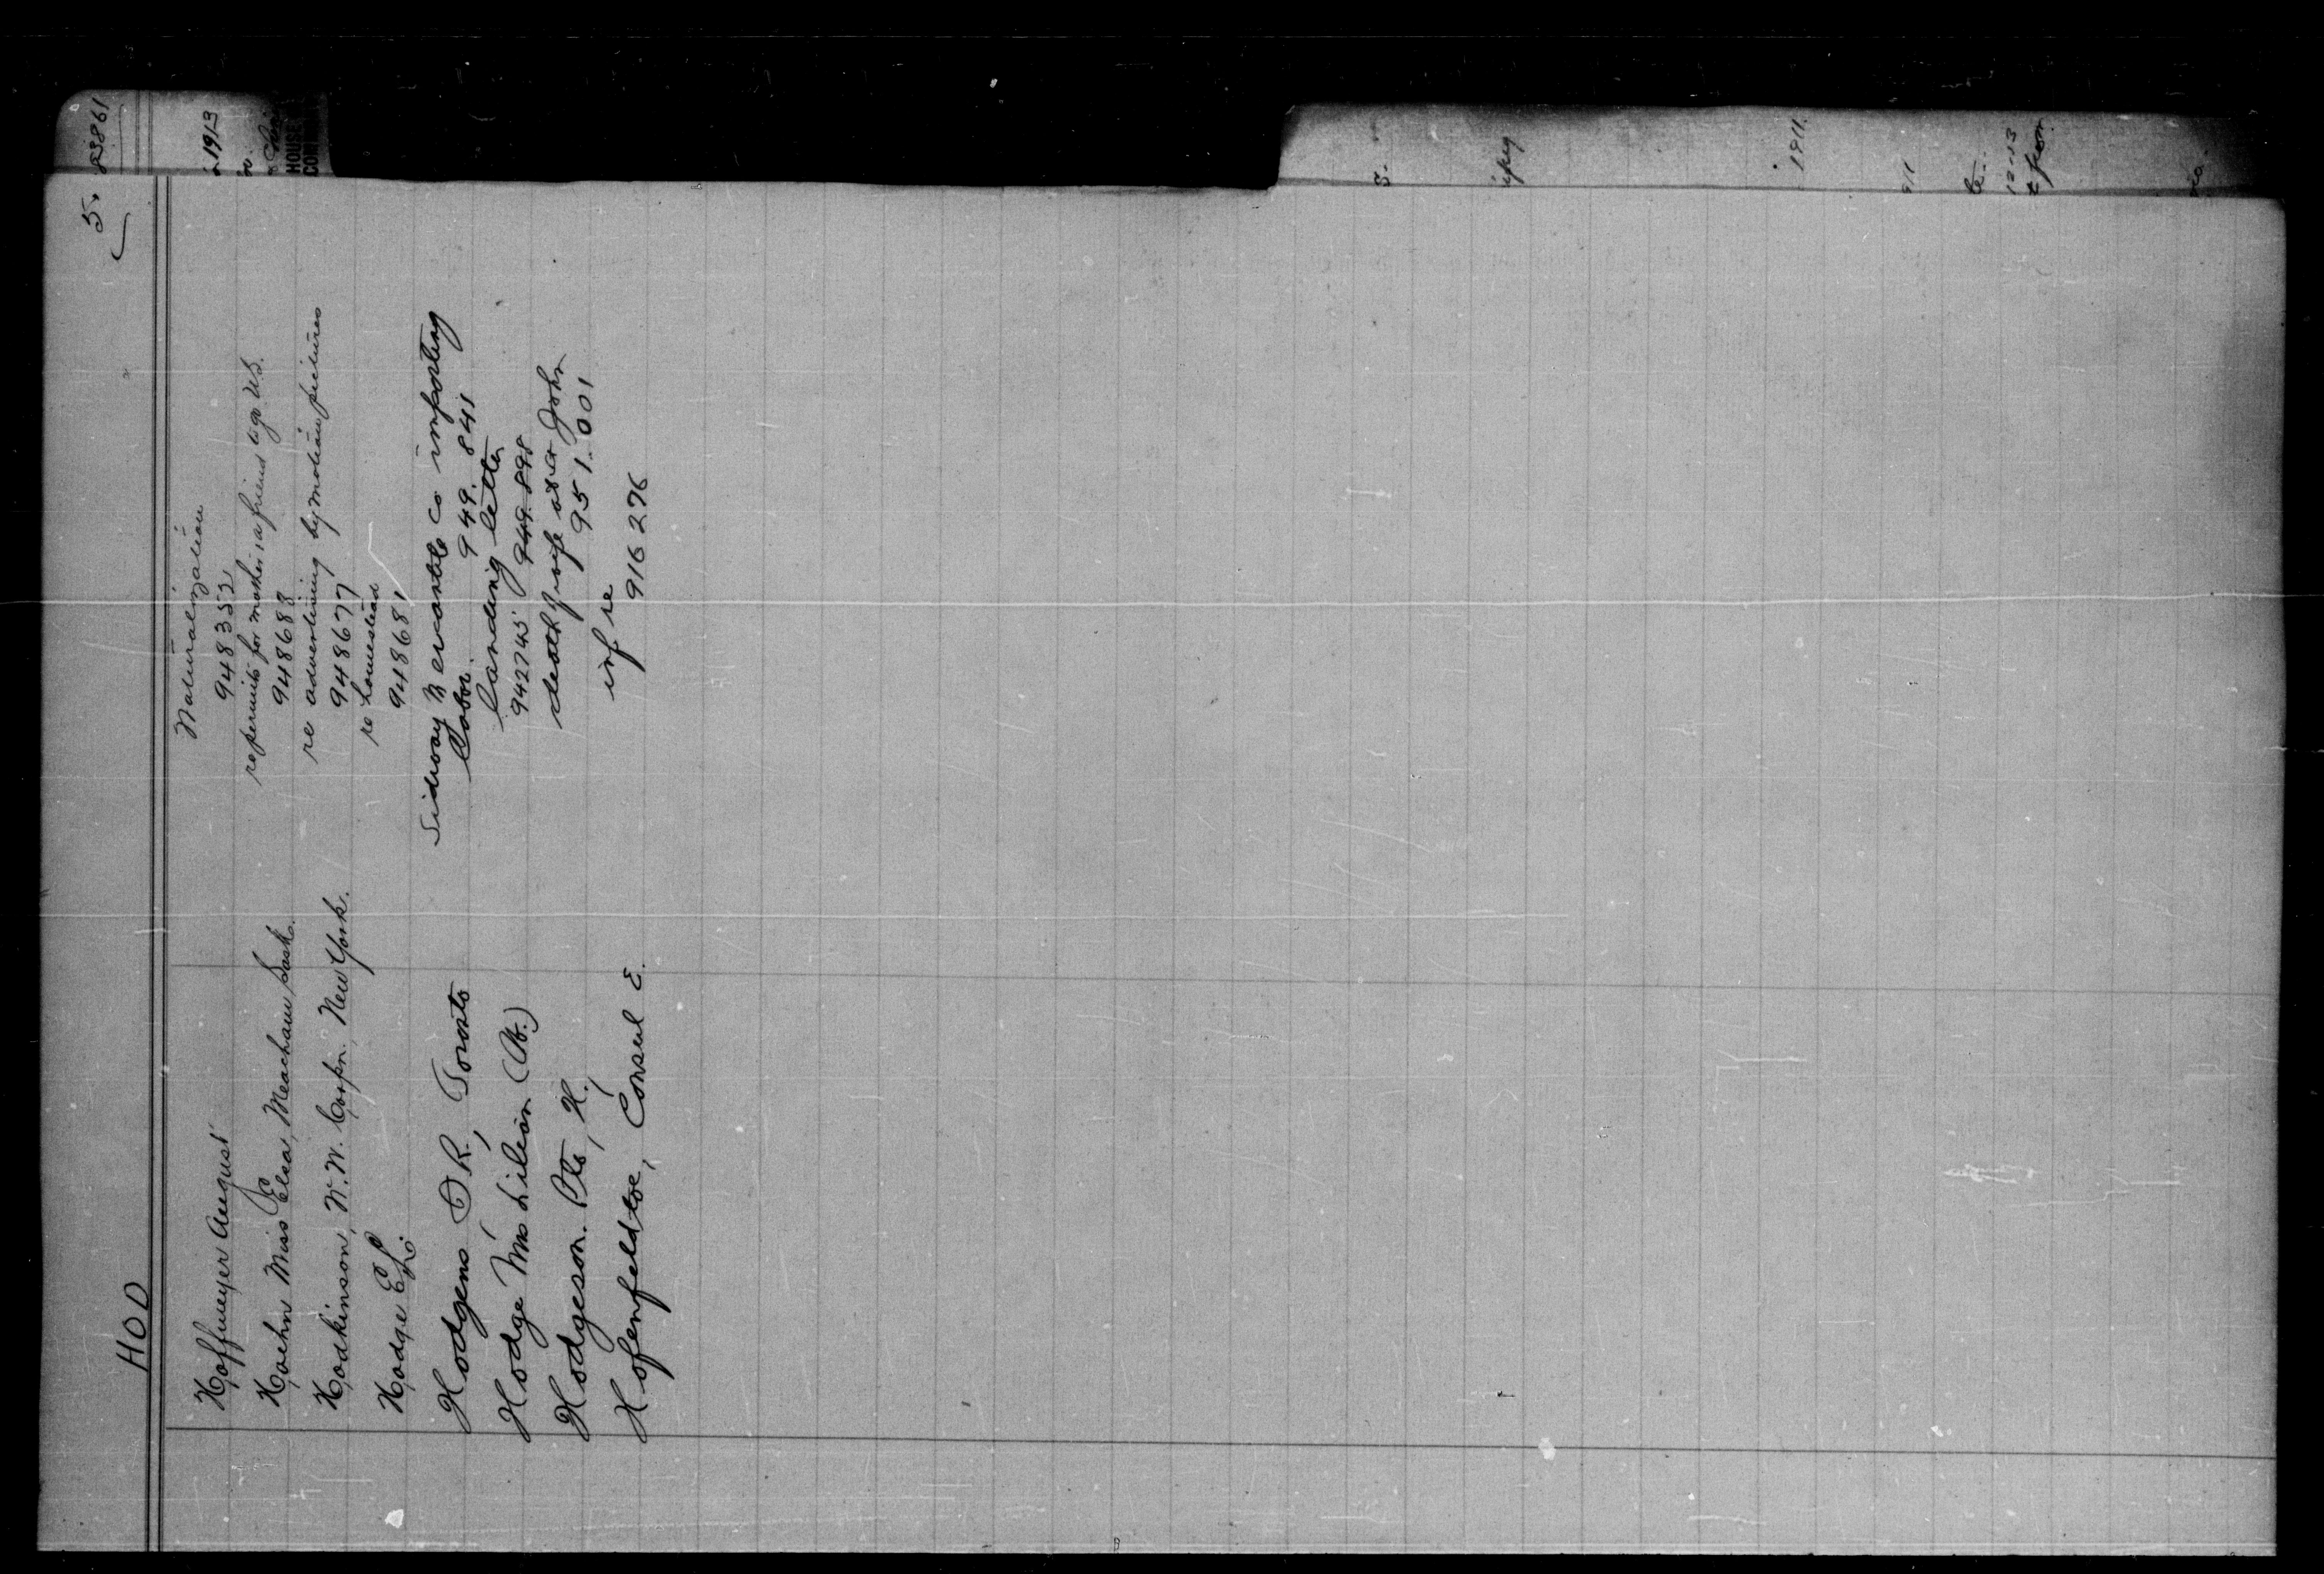 HOD
5.
Hoffmeyer August
Naturalization
948352
Hoehn Miss Elsa, Meacham Sask.
re permits for mother & a friend to go U.S.
948688
Hodkinson, W.W. Corpn. New York.
re advertising by motion pictures
948677
Hodge E.L.
re homestead
948681
Hodgens D R, Toronto
Sidway Mercantile Co importing
labor. 949.841
Hodge, Mrs Lilian (Dr.)
landing letter
942745 949 898
Hodgeson. Pte, H.,
death of John
951.001
Hofenfeldtoe, Consul E.
inf re
916276
1913
HOUSE
1911.
12-13